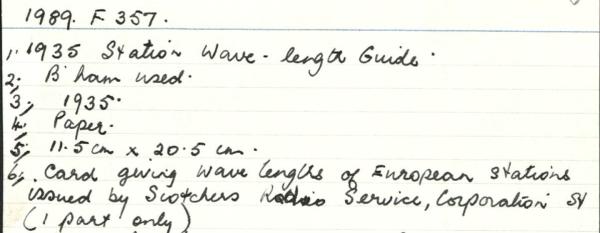 1989. F 357.
1. 1935 Station Wave-length Guide.
2. B'ham used.
3. 1935.
4. Paper.
5. 11.5cm x 20.5 cm.
6. Card giving wave lengths of European stations
issued by Scotchers Radio Service, Corporation St
(1 part only)